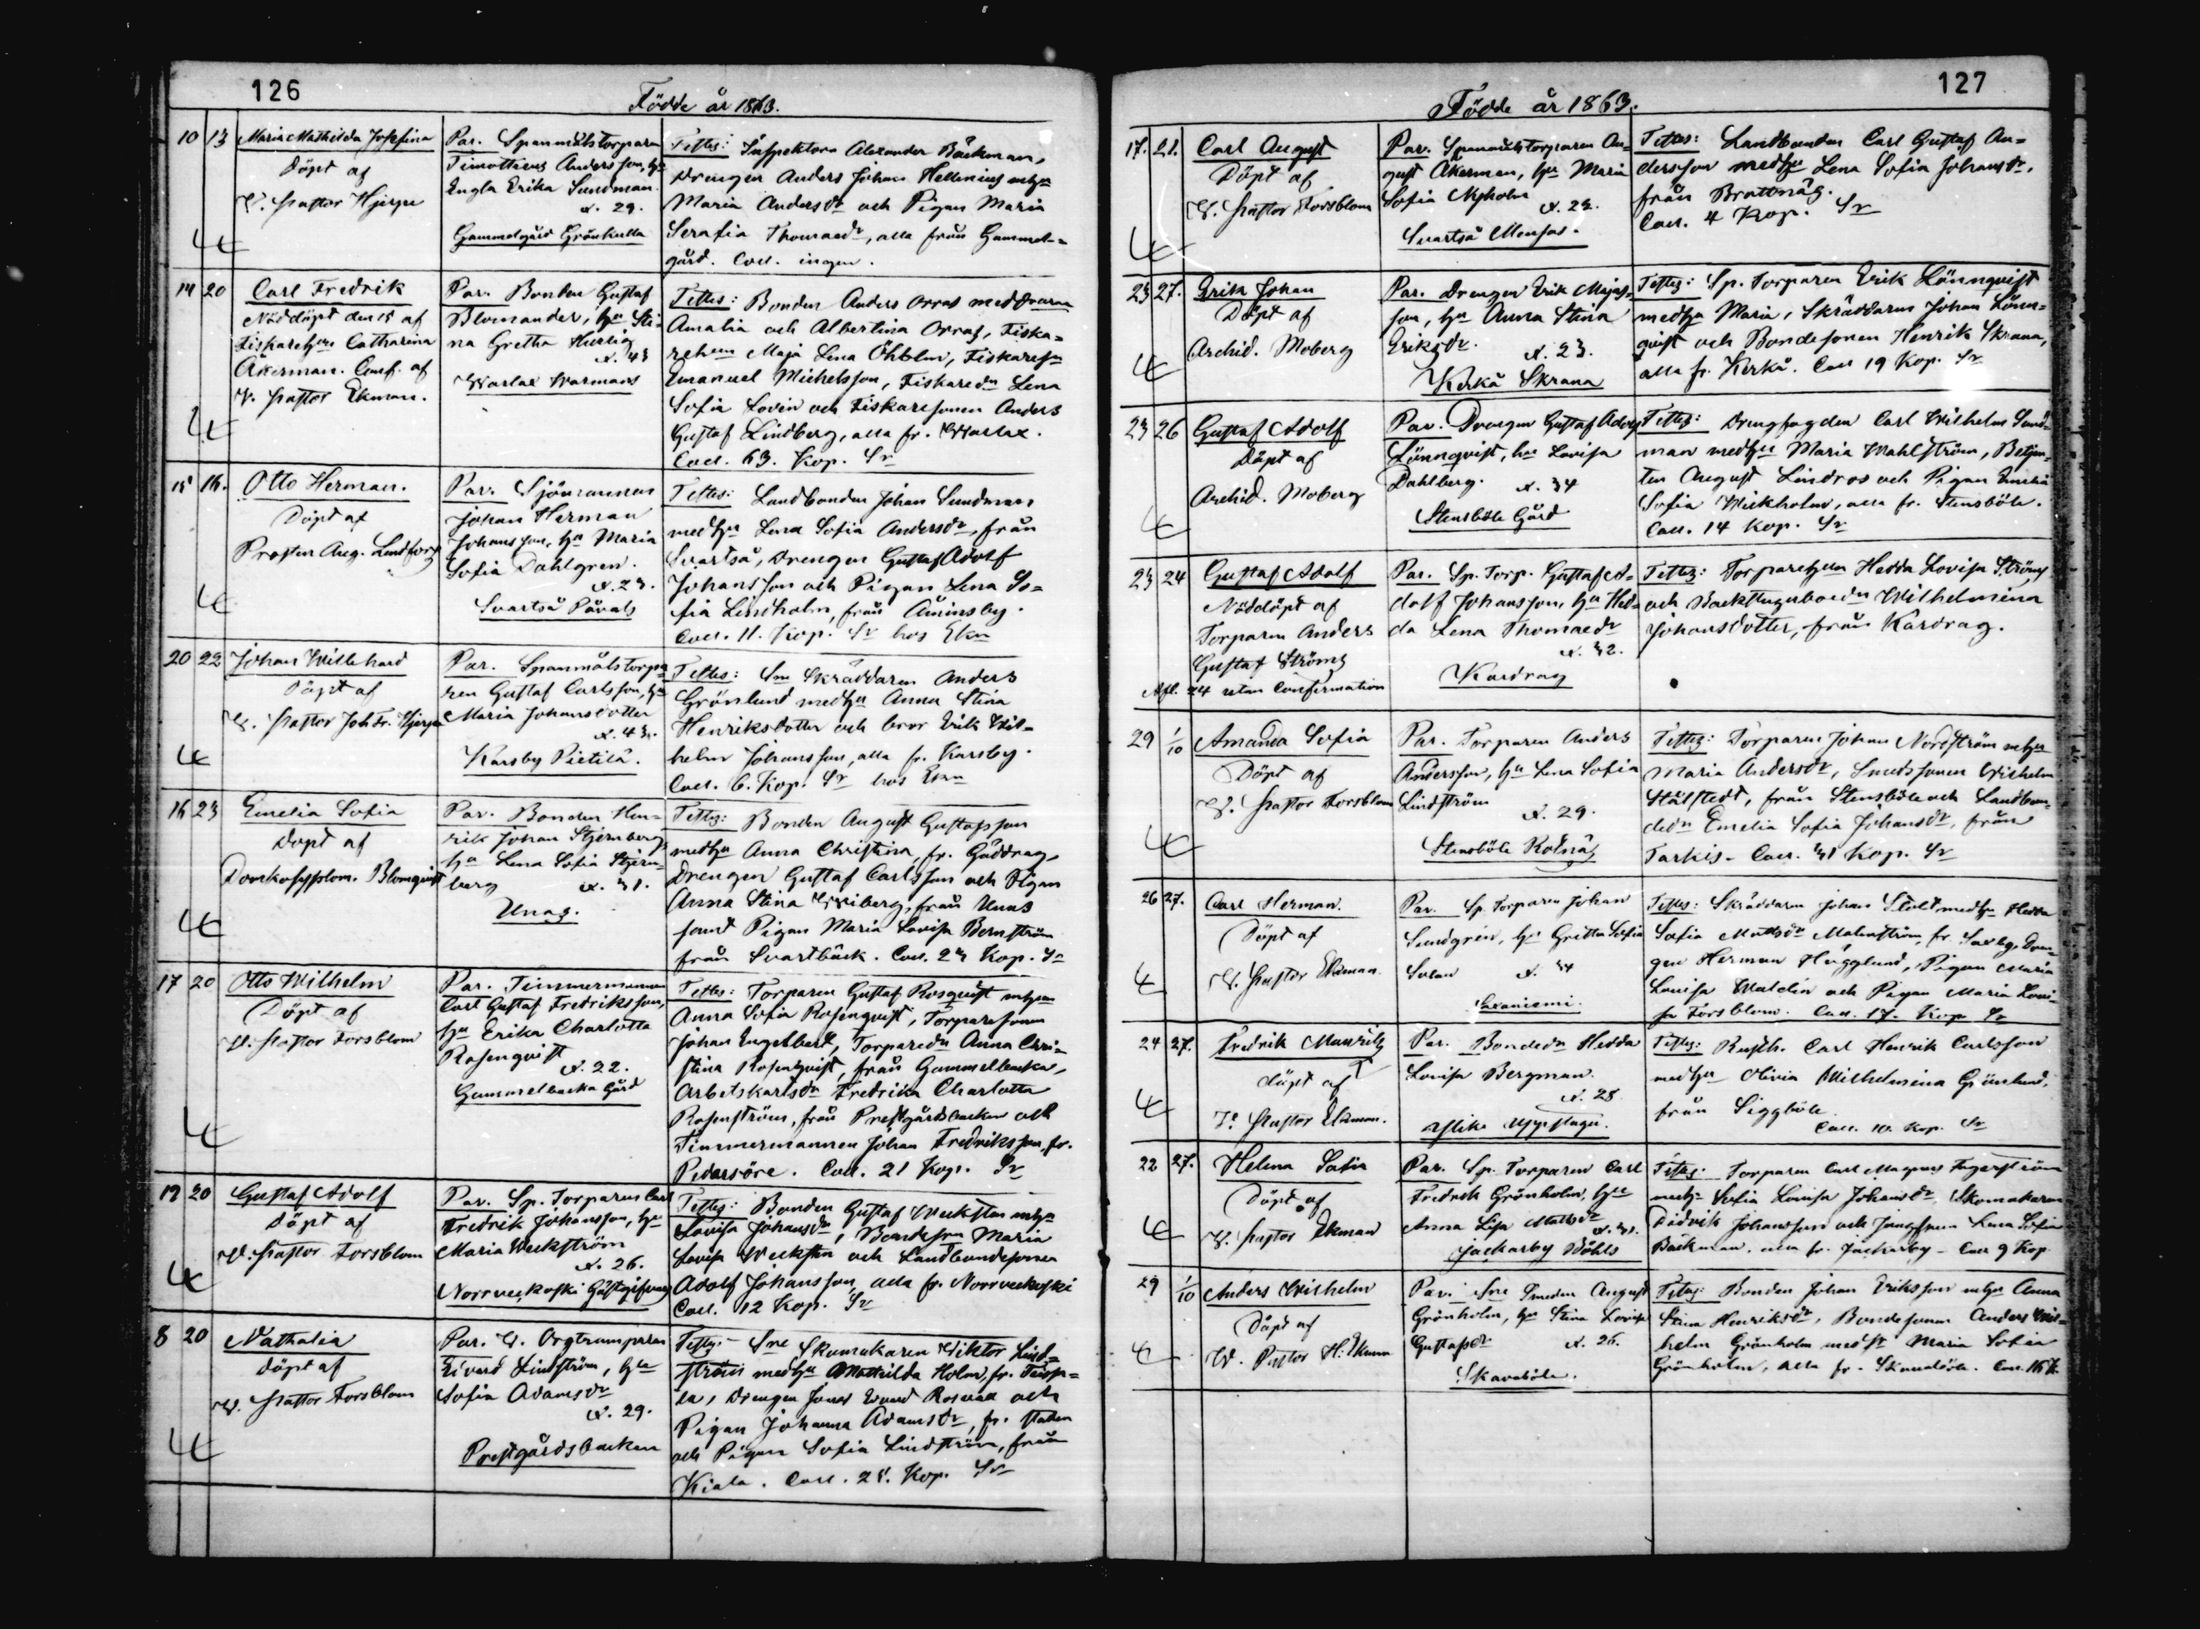 126
Födde år 1863.
10 13 Maria Mathilda Josefina
Döpt af
V. Pastor Hjerpe
Par. Spanmålstorparen
Timottheus Andersson, hu
Engla Erika Sundman.
Å. 29.
Gammelgård Grönkulla
Testes: Inspektorn Alexander Bäckman,
Drengen Anders Johan Hellenius
Maria Andersdr och Pigan Maria
Serafia Thomaedr, alla från Gammel=
gård. Coll. ingen.
14 20 Carl Fredrik
Nöddöpt den 15 af
Catharina
Åkerman. Conf. af
V. Pastor Ekman.
Par. Bonden Gustaf
Blomander, hu Sti-
na Gretha Hurtig
Å. 43
Warlax Warmans
Testes: Bonden Anders Orras med
Amalia och Albertina Orras, Fiska=
Maja Lena Öhblm, Fiskare
Emanuel Michelsson, Fiskaredn Lena
Sofia Lovin och Fiskaresonen Anders
Gustaf Lindberg, alla fr. Warlax.
Coll. 63. Kop. Sr
15 16. Otto Herman.
Döpt af
Prosten Aug. Lindfors
Par. Sjömannen
Johan Herman
Johansson, hu Maria
Sofia Dahlgren.
Å. 23.
Svartså Påvals
Testes: Landbonden Johan Sundman
med hu Lena Sofia Andersdr, från
Svartså, Drengen Gustaf Adolf
Johansson och Pigan Lena So-
fia Lindholm, från
Coll. 11. Kop. Sr hos Ekn
20 22 Johan Willehard
Döpt af
V. Pastor Joh. Fr. Hjerpe
Par. Spanmålstorpa-
ren Gustaf Carlsson, hu
Maria Johansdotter
Å. 43.
Karsby Pietilä.
Testes: Sn Skräddaren Anders
Grönlund med hu Anna Stina
Henriksdotter och bror Erik Wil-
helm Johansson, alla fr. Karsby.
Coll. 6. Kop. Sr hos Ekn
16 23 Emelia Sofia
Döpt af
Domkapsplom. Blomqvist
Par. Bonden Hen-
rik Johan Stjernberg,
hu Lena Sofia Stjern-
berg Å. 31.
Unas.
Testes: Bonden August Gustafsson
med hu Anna Christina, fr. Gäddrag,
Drengen Gustaf Carlsson och Pigan
Anna Stina Wiberg, från Unas
samt Pigan Maria Lovisa Bernström
från Svartbäck. Coll. 23 Kop. Sr
17 20 Otto Wilhelm
Döpt af
V. Pastor Forsblom
Par. Timmermannen
Carl Gustaf Fredriksson,
hu Erika Charlotta
Rosenqvist
Å. 22.
Gammelbacka Gård
Testes: Torparen Gustaf Rosqvist
Anna Sofia Rosenqvist, Torparesonen
Johan Engelbert, Torparedn Anna Chri-
stina Rosenqvist, från Gammelbacka,
Arbetskarlsdr Fredrika Charlotta
Rosenström, från Prestgårdsbacken och
Timmermannen Johan Fredriksson, fr.
Pedersöre. Coll. 21 Kop. Sr
19 20 Gustaf Adolf
Döpt af
V. Pastor Forsblom
Par. Sp. Torparen Carl
Fredrik Johansson, hu
Maria Weckström
Å. 26.
Norrveckoski Gästgifveri
Testes: Bonden Gustaf Weckstén
Lovisa Johansdr, Maria
Lovisa Weckstén och Landbondesonen
Adolf Johansson, alla fr. Norrveckoski
Coll. 12 Kop. Sr
8 20 Nathalia
Döpt af
V. Pastor Forsblom
Par. V. Orgtramparen
Edvard Lindström, hu
Sofia Adamsdr
Å. 29.
Prestgårdsbacken
Testes: Sne Skomakaren Wiktor Lind=
ström med hu Mathilda Holm, fr.
Drengen Edvard och
Pigan Johanna Adamsdr, fr. staden
och Pigan Sofia Lindström, från
Kiala. Coll. 25. Kop. Sr
127
Födde år 1863.
17. 21. Carl August
Döpt af
V. Pastor Forsblom
Par. Spanmålstorparen Au-
gust Åkerman, hu Maria
Sofia Nyholm
Å. 29.
Svartså Monsas.
Testes: Landbonden Carl Gustaf An-
dersson med hu Lena Sofia Johansdr,
från Brattnäs.
Coll. 4 Kop. Sr
23 27. Erik Johan
Döpt af
Archid. Moberg
Par. Drengen Erik Majas-
son, hu Anna Stina
Eriksdr. Å. 23.
Kerkå Skrana
Testes: Sp. Torparen Erik Lönnqvist
med hu Maria, Skräddaren Johan Lönn-
qvist och Bondesonen Henrik Skrana,
alla fr. Kerkå. Coll 19 Kop. Sr
23 26 Gustaf Adolf
Döpt af
Archid. Moberg
Par. Drengen Gustaf Adolf
Lönnqvist, hu Lovisa
Dahlberg. Å. 34
Stensböle Gård
Testes: Drengfogden Carl Wilhelm Sund-
man med hu Maria Wahlström, Betjen-
ten August Lindros och Pigan Emelia
Sofia Wickholm, alla fr. Stensböle.
Coll. 14 Kop. Sr
23 24 Gustaf Adolf
Nöddöpt af
Torparen Anders
Gustaf Ströms
Afl. 24 utan Confirmation
Par. Sp. Torp. Gustaf A-
dolf Johansson, hu Hed-
da Lena Thomaedr
Å. 32.
Kardrag
Testes: Torpare Hedda Lovisa Ströms
och Wilhelmina
Johansdotter, från Kardrag.
29 1/10 Amanda Sofia
Döpt af
V. Pastor Forsblom
Par. Torparen Anders
Andersson, hu Lena Sofia
Lindström
Å. 29.
Stensböle Rotnäs
Testes: Torparen Johan Nordström
Maria Andersdr, Smedssonen Wilhelm
Stålstedt, från Stensböle och Landbon-
dedn Emelia Sofia Johansdr, från
Tarkis. Coll. 31 Kop. Sr
26 27. Carl Herman.
Döpt af
V. Pastor Ekman.
Par. Sp. Torparen Johan
Sundgren, hu Gretta Sofia
Å. 34
Saxaniemi.
Testes: Skräddaren Johan Stolt med hu Hedda
Sofia Mattsdr Malmström, fr. Saxby, Dren-
gen Herman Hägglund, Pigan Maria
Lovisa Walelin och Pigan Maria Lovi-
sa Forsblom. Coll. 17. Kop Sr
24 27. Fredrik Mauritz
döpt af
V. Pastor Ekman.
Par. Bondedn Hedda
Lovisa Bergman.
Å. 28
Testes: Rusth. Carl Henrik Carlsson
med hu Olivia Wilhelmina Grönlund,
från Siggböle
Coll. 10. Kop. Sr
22 27. Helena Sofia
Döpt af
V. Pastor Ekman
Par. Sp. Torparen Carl
Fredrik Grönholm, hu
Anna Lisa Mattsdr
Å. 31.
Jackarby Böhls
Testes: Torparen Carl Magnus Fagerström
med hu Sofia Lovisa Johansdr, Skomakaren
Didrik Johansson och Jungfrun Lena Sofia
Bäckman, alla fr. Jackarby - Coll 9 Kop
29 1/10 Anders Wilhelm
Döpt af
V. Pastor H. Ekman
Par. Sne Smeden August
Grönholm, hu Stina Lovisa
Gustafsdr Å. 26.
Skaveböle.
Testes: Bonden Johan Eriksson Anna
Stina Henriksdr, Bondesonen Anders Wil-
helm Grönholm med Maria Sofia
Grönholm, alla fr. Skaveböle. Coll. 16 K.